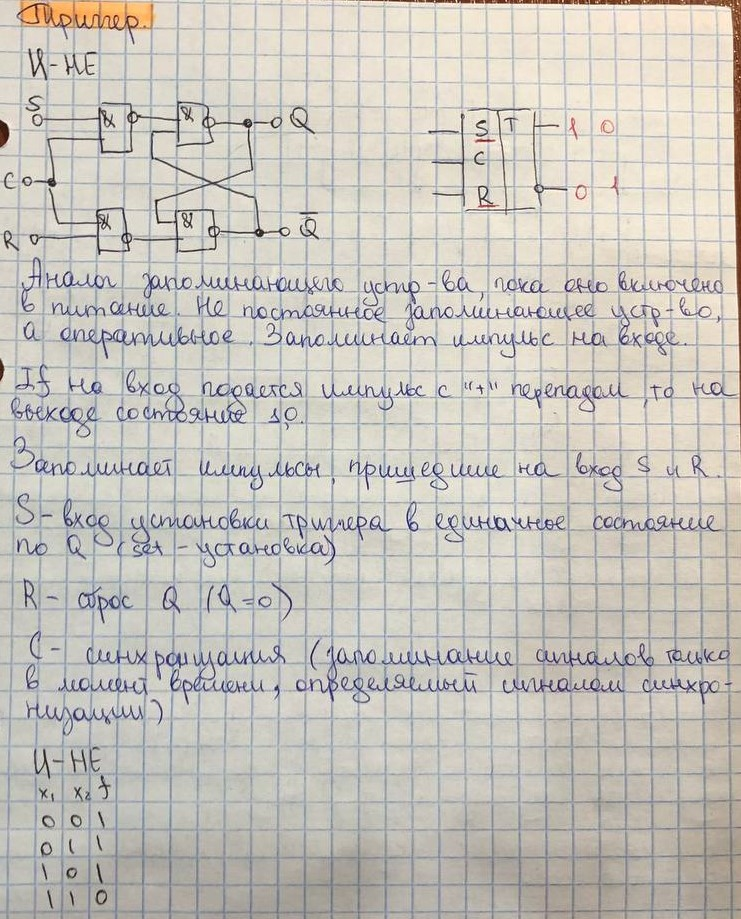 Триггер.
И-НЕ
S & & Q
C
R & & Q̅
S T 1 0
C
R 0 1
Аналог запоминающего устр-ва, пока оно включено
в питание. Не постоянное запоминающее устр-во,
а оперативное. Запоминает импульс на входе.
If на вход подается импульс с "+" перепадом, то на
выходе состояние 1,0.
Запоминает импульсы, пришедшие на вход S и R.
S - вход установки триггера в единачное состояние
по Q (set - установка)
R - сброс Q (Q=0)
C - синхронизация (запоминание сигналов только
в момент времени, определяемый сигналом синхро-
низации)
И-НЕ
x₁ x₂ f
0 0 1
0 1 1
1 0 1
1 1 0